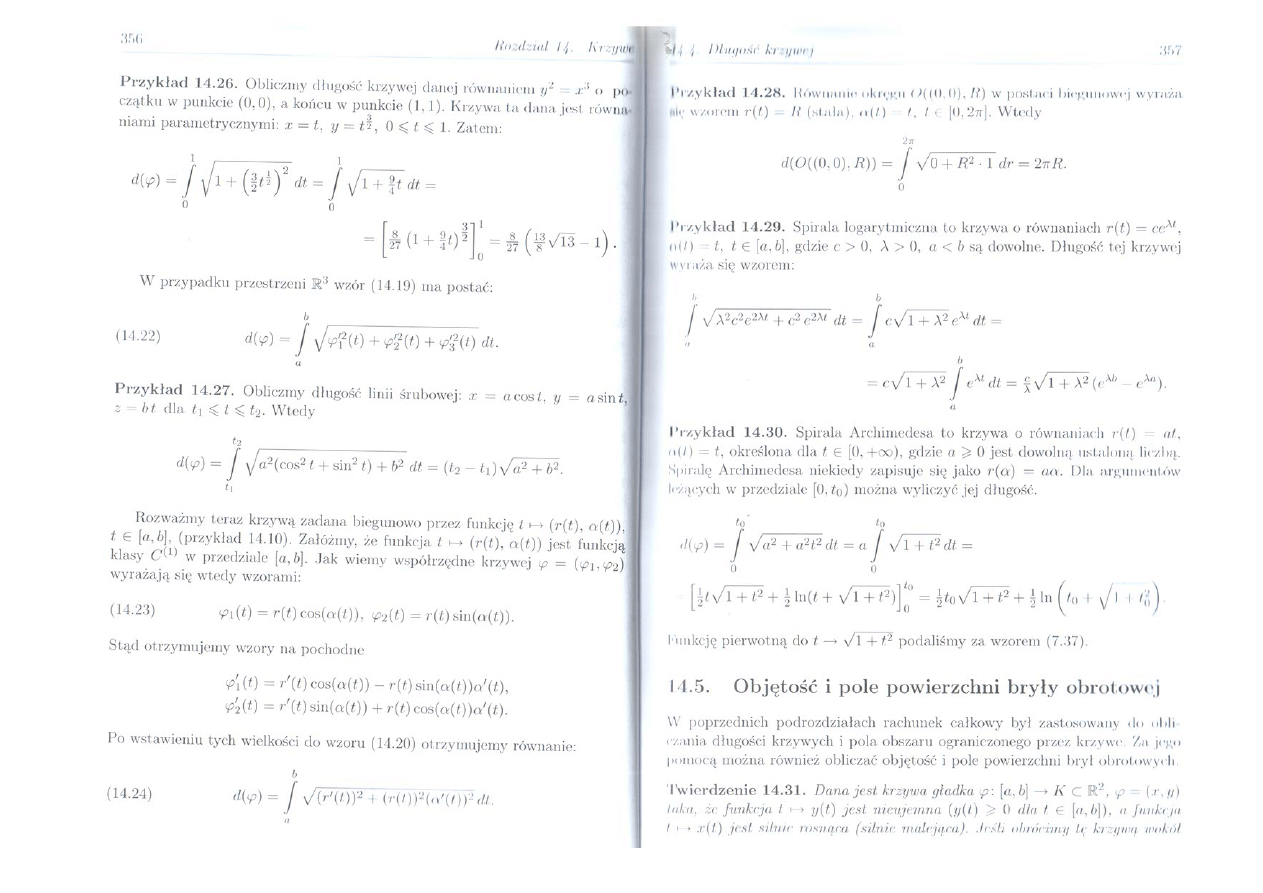 356
Rozdział 14. Krzywe
Przykład 14.26. Obliczmy długość krzywej danej równaniem y² = x³ o po-
czątku w punkcie (0,0), a końcu w punkcie (1,1). Krzywa ta dana jest równa-
niami parametrycznymi: x = t, y = t^{3/2}, 0 ⩽ t ⩽ 1. Zatem:
d(φ) = ∫₀¹ √(1 + (3/2 t^{1/2})²) dt = ∫₀¹ √(1 + 9/4 t) dt =
= [8/27 (1 + 9/4 t)^{3/2}]₀¹ = 8/27 (13/8 √13 − 1).
W przypadku przestrzeni ℝ³ wzór (14.19) ma postać:
(14.22) d(φ) = ∫ₐᵇ √(φ₁′²(t) + φ₂′²(t) + φ₃′²(t)) dt.
Przykład 14.27. Obliczmy długość linii śrubowej: x = a cos t, y = a sin t,
z = bt dla t₁ ⩽ t ⩽ t₂. Wtedy
d(φ) = ∫_{t₁}^{t₂} √(a²(cos² t + sin² t) + b²) dt = (t₂ − t₁)√(a² + b²).
Rozważmy teraz krzywą zadana biegunowo przez funkcję t ↦ (r(t), α(t)),
t ∈ [a,b], (przykład 14.10). Załóżmy, że funkcja t ↦ (r(t), α(t)) jest funkcją
klasy C⁽¹⁾ w przedziale [a,b]. Jak wiemy współrzędne krzywej φ = (φ₁,φ₂)
wyrażają się wtedy wzorami:
(14.23) φ₁(t) = r(t) cos(α(t)), φ₂(t) = r(t) sin(α(t)).
Stąd otrzymujemy wzory na pochodne
φ₁′(t) = r′(t) cos(α(t)) − r(t) sin(α(t))α′(t),
φ₂′(t) = r′(t) sin(α(t)) + r(t) cos(α(t))α′(t).
Po wstawieniu tych wielkości do wzoru (14.20) otrzymujemy równanie:
(14.24) d(φ) = ∫ₐᵇ √((r′(t))² + (r(t))²(α′(t))²) dt.
14.4. Długość krzywej
357
Przykład 14.28. Równanie okręgu O((0,0), R) w postaci biegunowej wyraża
się wzorem r(t) = R (stała), α(t) = t, t ∈ [0,2π]. Wtedy
d(O((0,0), R)) = ∫₀^{2π} √(0 + R² · 1) dr = 2πR.
Przykład 14.29. Spirala logarytmiczna to krzywa o równaniach r(t) = ce^{λt},
α(t) = t, t ∈ [a,b], gdzie c > 0, λ > 0, a < b są dowolne. Długość tej krzywej
wyraża się wzorem:
∫ₐᵇ √(λ²c²e^{2λt} + c²e^{2λt}) dt = ∫ₐᵇ c√(1 + λ²) e^{λt} dt =
= c√(1 + λ²) ∫ₐᵇ e^{λt} dt = c/λ √(1 + λ²) (e^{λb} − e^{λa}).
Przykład 14.30. Spirala Archimedesa to krzywa o równaniach r(t) = at,
α(t) = t, określona dla t ∈ [0, +∞), gdzie a ⩾ 0 jest dowolną ustaloną liczbą.
Spiralę Archimedesa niekiedy zapisuje się jako r(α) = aα. Dla argumentów
leżących w przedziale [0, t₀) można wyliczyć jej długość.
d(φ) = ∫₀^{t₀} √(a² + a²t²) dt = a ∫₀^{t₀} √(1 + t²) dt =
[1/2 t√(1 + t²) + 1/2 ln(t + √(1 + t²))]₀^{t₀} = 1/2 t₀√(1 + t²) + 1/2 ln (t₀ + √(1 + t₀²)).
Funkcję pierwotną do t → √(1 + t²) podaliśmy za wzorem (7.37).
14.5. Objętość i pole powierzchni bryły obrotowej
W poprzednich podrozdziałach rachunek całkowy był zastosowany do obli-
czania długości krzywych i pola obszaru ograniczonego przez krzywe. Za jego
pomocą można również obliczać objętość i pole powierzchni brył obrotowych.
Twierdzenie 14.31. Dana jest krzywa gładka φ: [a,b] → K ⊂ ℝ², φ = (x,y)
taka, że funkcja t ↦ y(t) jest nieujemna (y(t) ⩾ 0 dla t ∈ [a,b]), a funkcja
t ↦ x(t) jest silnie rosnąca (silnie malejąca). Jeśli obrócimy tę krzywą wokół